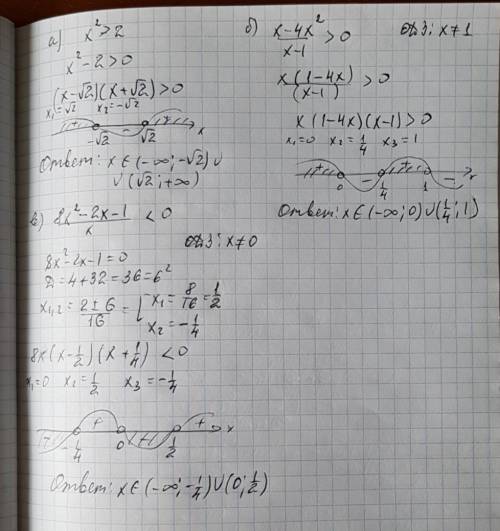 а) x² > 2
x² - 2 > 0
(x-√2)(x+√2) > 0
x₁ = √2 x₂ = -√2
+ - +
-√2 √2 x
Ответ: x ∈ (-∞; -√2) ∪
∪ (√2; +∞)
б) x-4x² / x-1 > 0 ОДЗ: x ≠ 1
x(1-4x) / (x-1) > 0
x(1-4x)(x-1) > 0
x₁ = 0 x₂ = 1/4 x₃ = 1
+ - + -
0 1/4 1 x
Ответ: x ∈ (-∞; 0) ∪ (1/4; 1)
в) 8x² - 2x - 1 / x < 0
ОДЗ: x ≠ 0
8x² - 2x - 1 = 0
D = 4 + 32 = 36 = 6²
x₁,₂ = 2 ± 6 / 16 = [ x₁ = 8/16 = 1/2
x₂ = -1/4
8x(x - 1/2)(x + 1/4) < 0
x₁ = 0 x₂ = 1/2 x₃ = -1/4
- + - +
-1/4 0 1/2 x
Ответ: x ∈ (-∞; -1/4) ∪ (0; 1/2)